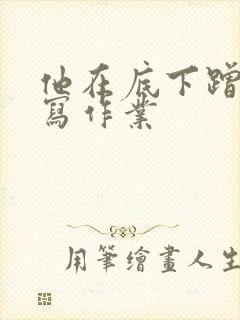 他在底下蹭
寫作業
用筆繪畫人生